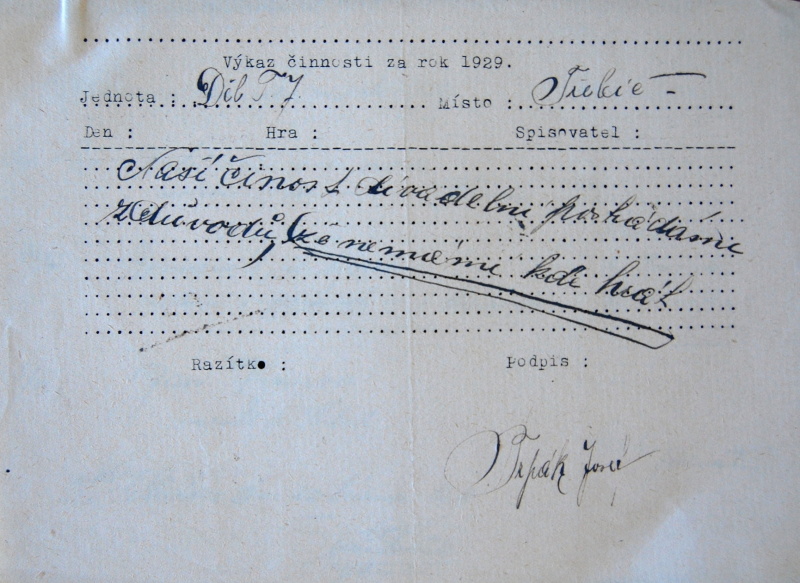 Výkaz činnosti za rok 1929.
Jednota : Děl T J Místo :
Den : Hra : Spisovatel :
Naší činost divadelní pohádáme
z důvodů, že nemáme kde hrát
Razítko : Podpis :